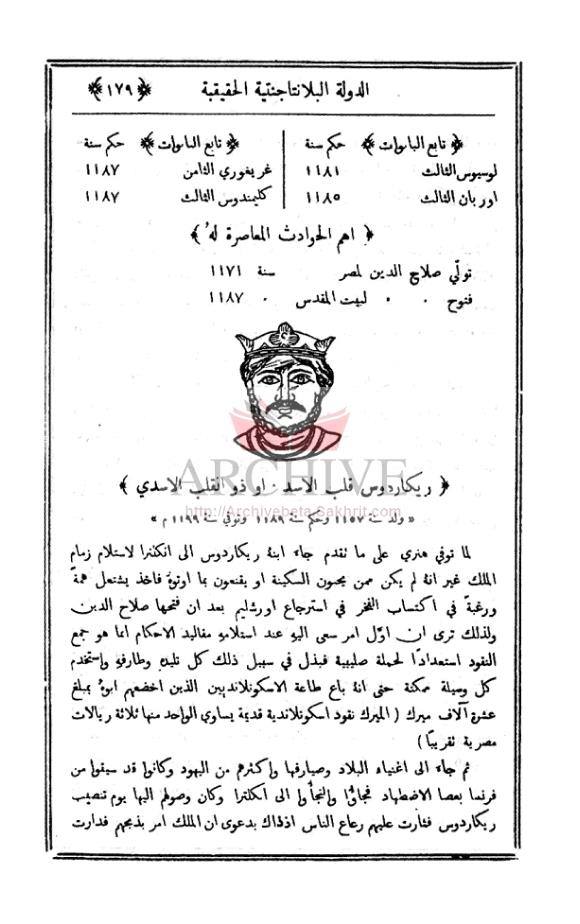 الدولة البلانتاجنتية الحقيقية ﴿١٧٩﴾
﴿ تابع الباباوات ﴾ حكم سنة
لوسيوس الثالث ١١٨١
اوربان الثالث ١١٨٥
﴿ تابع الباباوات ﴾ حكم سنة
غريغوري الثامن ١١٨٧
كليمندوس الثالث ١١٨٧
﴿ اهم الحوادث المعاصرة لهُ ﴾
تولّي صلاح الدين لمصر سنة ١١٧١
فتوح ٠ ٠ لبيت المقدس ٠ ١١٨٧
ARCHIVE
﴿ ريكاردوس قلب الاسد ٠ او ذو القلب الاسدي ﴾
http://Archivebeta.Sakhrit.com
« ولد سنة ١١٥٧ وحكم سنة ١١٨٩ وتوفي سنة ١١٩٩ م »
لما توفي هنري على ما تقدم جاء ابنهُ ريكاردوس الى انكلترا لاستلام زمام
الملك غير انهُ لم يكن ممن يحبون السكينة او يقنعون بما اوتوهُ فاخذ يشتعل همةً
ورغبةً في اكتساب الفخر في استرجاع اورشليم بعد ان فتحها صلاح الدين
ولذلك ترى ان اوّل امر سعى اليهِ عند استلامهِ مقاليد الاحكام انما هو جمع
النقود استعدادًا لحملة صليبية فبذل في سبيل ذلك كل تليدٍ وطارفٍ واستخدم
كل وسيلة ممكنة حتى انهُ باع طاعة الاسكوتلانديين الذين اخضعهم ابوهُ بمبلغ
عشرة آلاف ميرك ( الميرك نقود اسكوتلاندية قديمة يساوي الواحد منها ثلاثة ريالات
مصرية تقريبًا )
ثم جاء الى اغنياء البلاد وصيارفها واكثرهم من اليهود وكانوا قد سيقوا من
فرنسا بعصا الاضطهاد فجاؤُا والتجأُوا الى انكلترا وكان وصولهم اليها يوم تنصيب
ريكاردوس فثارت عليهم رعاع الناس اذذاك بدعوى ان الملك امر بذبحهم فدارت